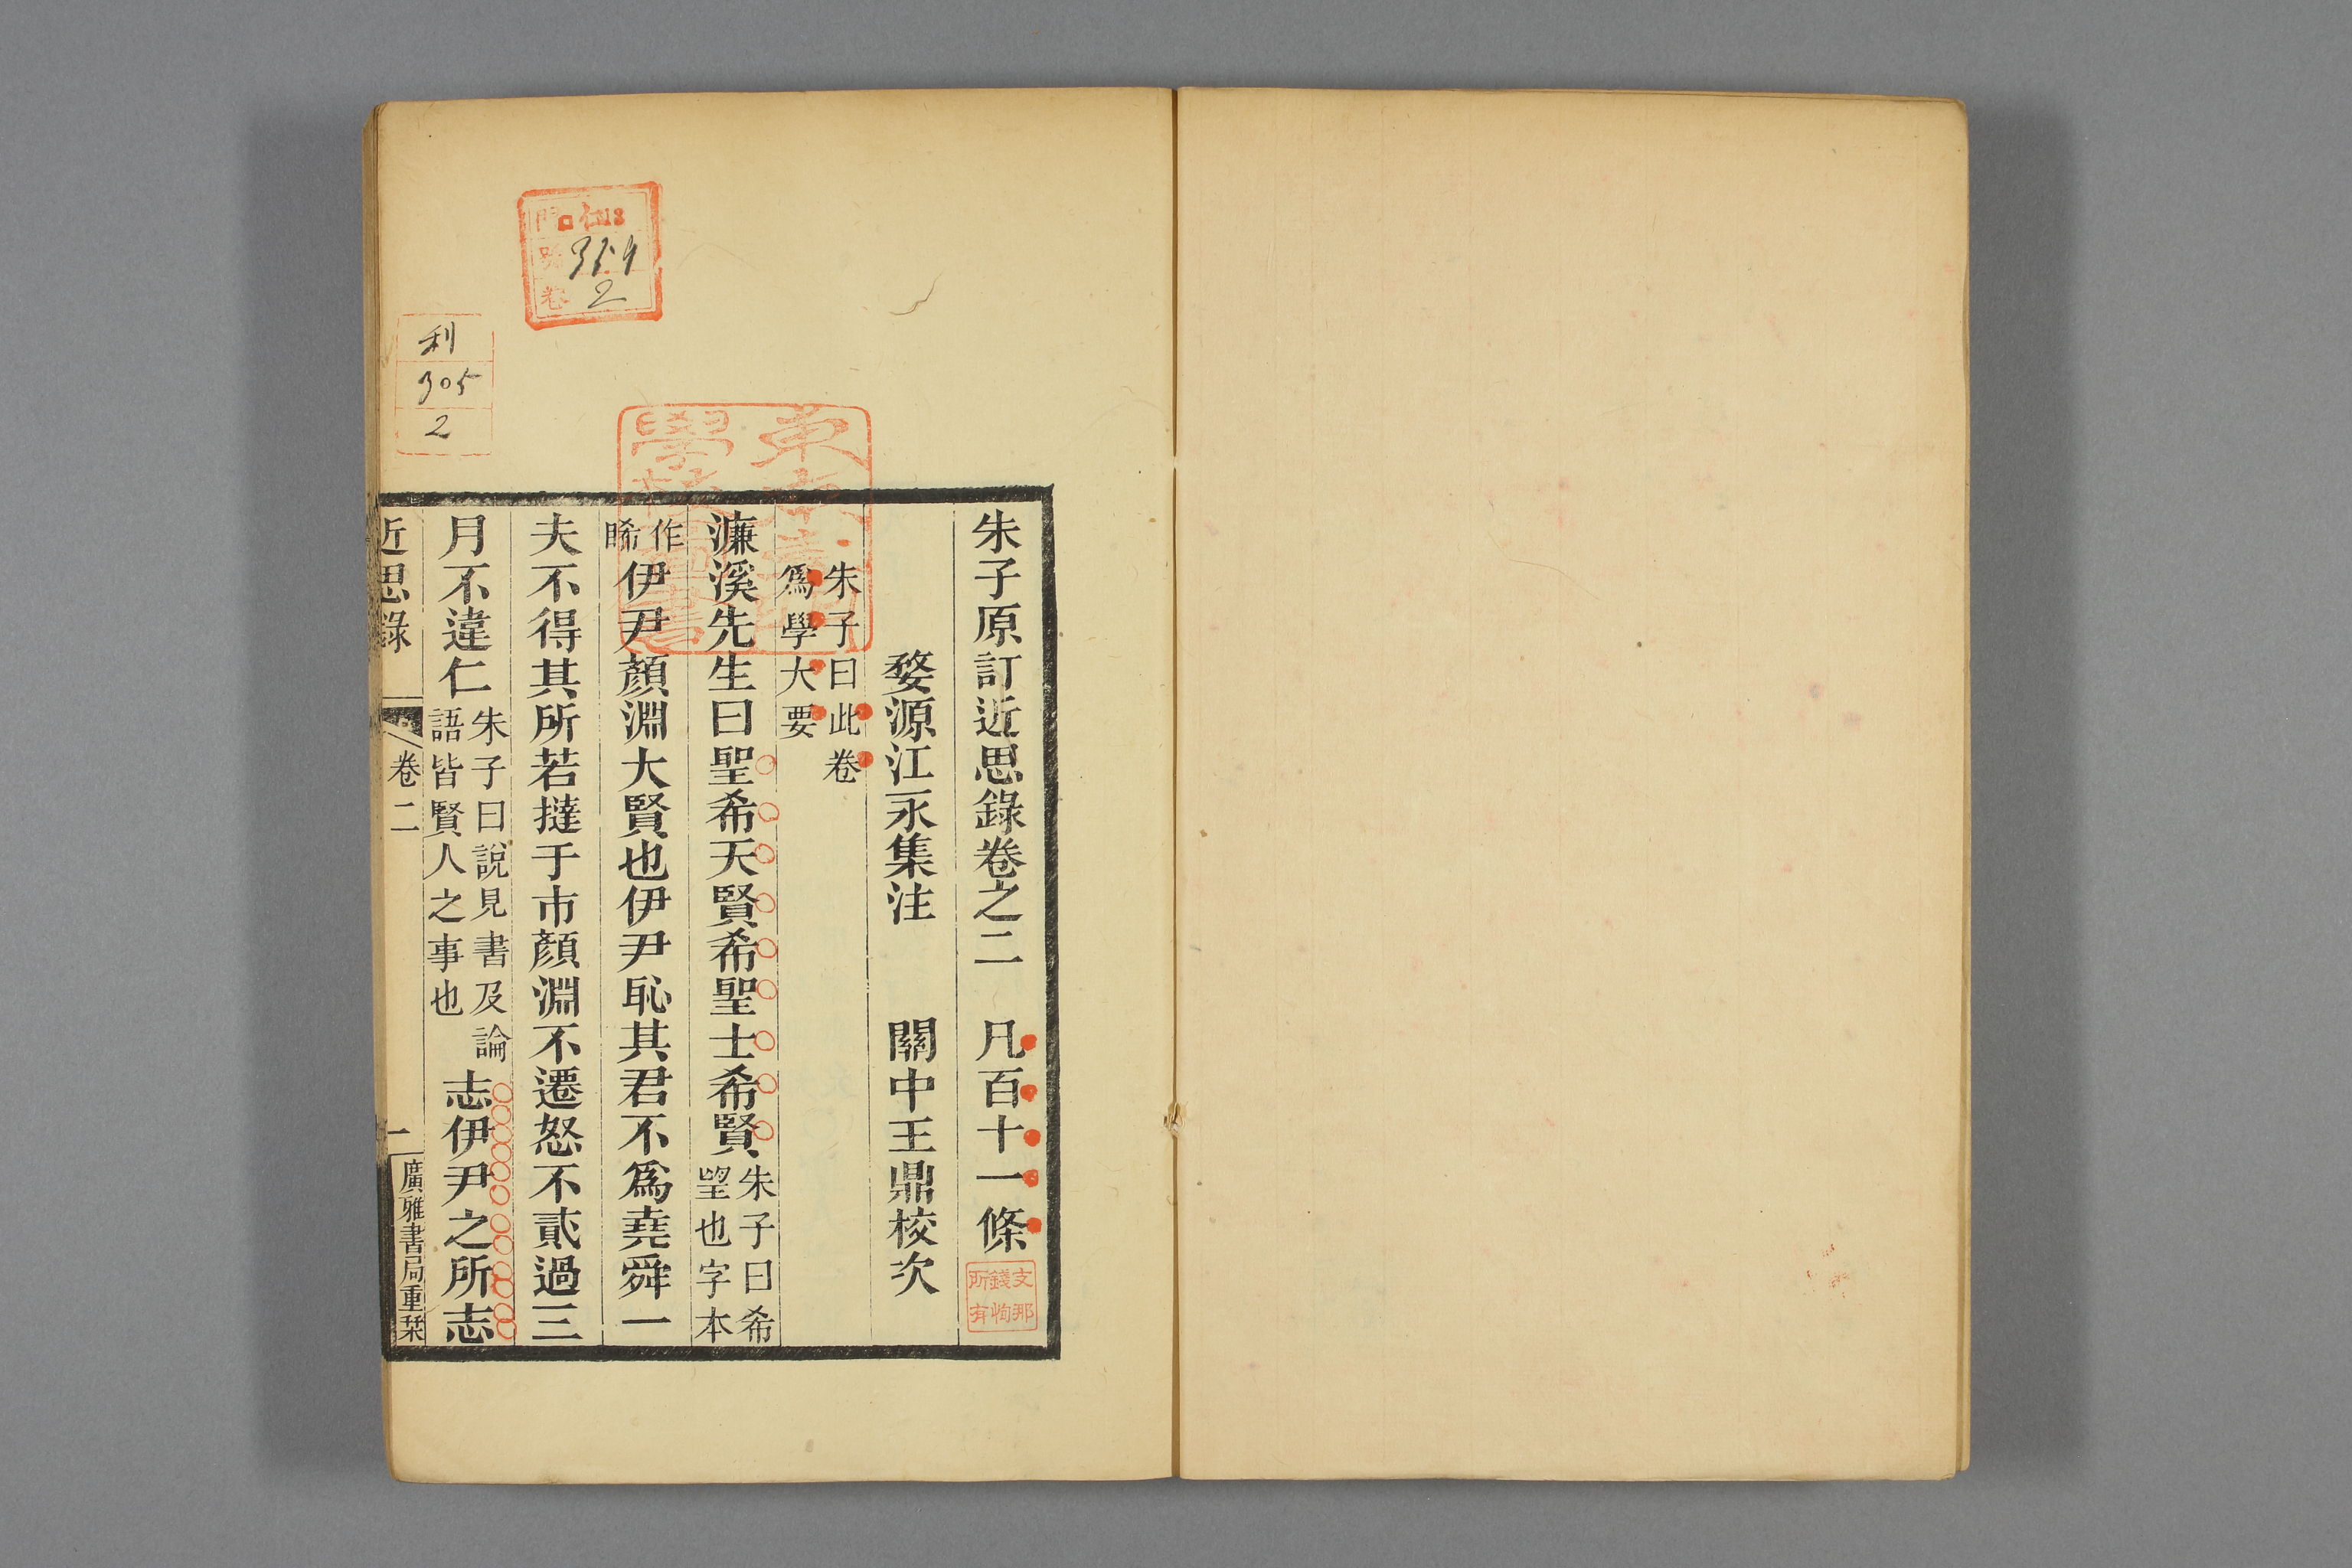 朱子原訂近思錄卷之二 凡百十一條
婺源江永集注 關中王鼎校次
朱子曰此卷
爲學大要
濂溪先生曰聖希天賢希聖士希賢朱子曰希望也字本
作睎伊尹顏淵大賢也伊尹恥其君不爲堯舜一
夫不得其所若撻于市顏淵不遷怒不貳過三
月不違仁朱子曰說見書及論語皆賢人之事也志伊尹之所志
近思錄 卷二 一 廣雅書局重栞
支那
錢恂
所有
利
305
2
門
號
卷 2